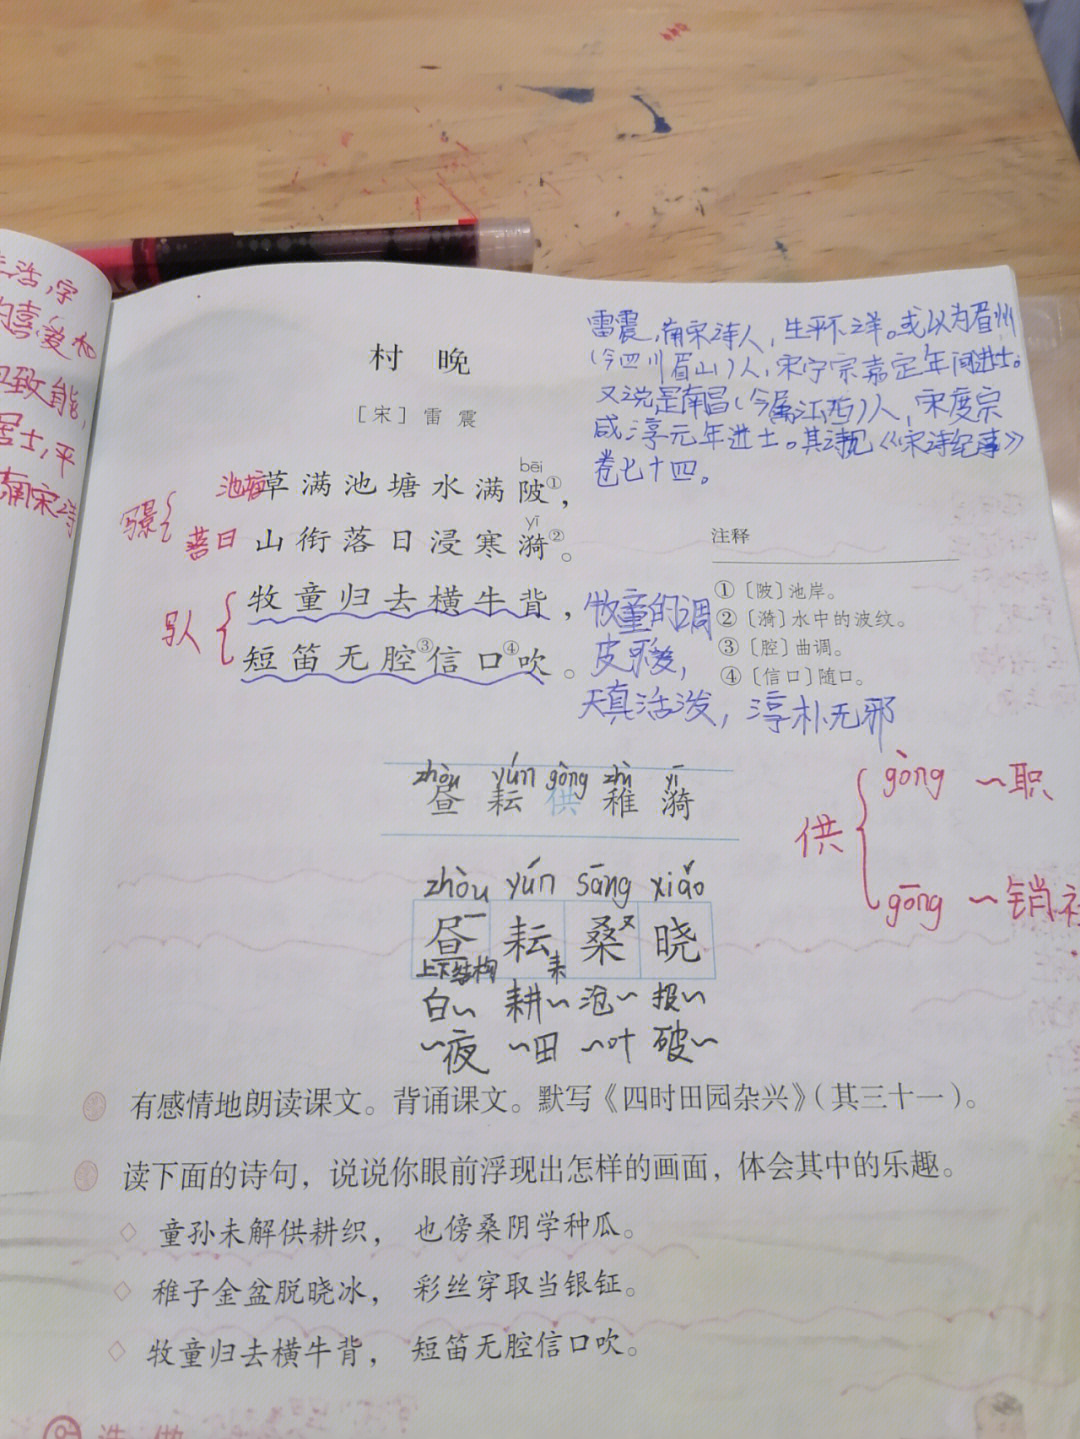 生活,字
的喜爱和
致能,
居士,平
南宋诗
村 晚
［宋］雷 震
雷震,南宋诗人,生平不详。或以为眉州
(今四川眉山)人,宋宁宗嘉定年间进士。
又说是南昌(今属江西)人,宋度宗
咸淳元年进士。其诗见《宋诗纪事》
卷七十四。
写景
池塘
bēi
草满池塘水满陂①,
落日
yī
山衔落日浸寒漪②。
写人
牧童归去横牛背,
短笛无腔③信口④吹。
牧童的调
皮可爱,
天真活泼,淳朴无邪
注释
①〔陂〕池岸。
②〔漪〕水中的波纹。
③〔腔〕曲调。
④〔信口〕随口。
zhòu yún gòng zhì yī
昼 耘 供 稚 漪
供
gòng ~职
gōng ~销社
zhòu yún sāng xiǎo
昼 耘 桑 晓
上下结构 耒 又
白~ 耕~ 沧~ 报~
~夜 ~田 ~叶 破~
有感情地朗读课文。背诵课文。默写《四时田园杂兴》(其三十一)。
读下面的诗句,说说你眼前浮现出怎样的画面,体会其中的乐趣。
◇ 童孙未解供耕织, 也傍桑阴学种瓜。
◇ 稚子金盆脱晓冰, 彩丝穿取当银钲。
◇ 牧童归去横牛背, 短笛无腔信口吹。
选 做